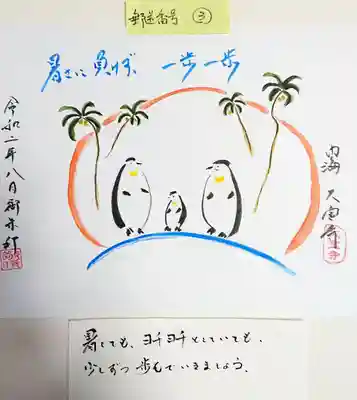 郵送番号 ③
暑さに負けず、一歩一歩
令和二年八月
内海 大宝寺
暑くても、ヨチヨチとしていても、
少しずつ歩もでいきましょう。